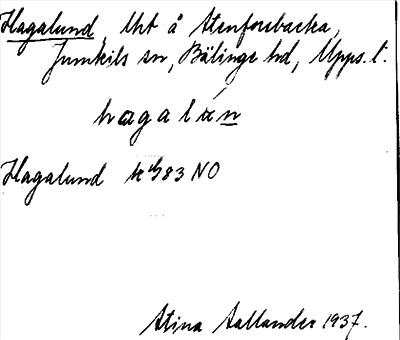 Hagalund, lht å Stenforsbacka,
Jumkils sn, Bälinge hd, Upps. l.
hagalun
Hagalund k 83 NO
Stina Sallander 1937.